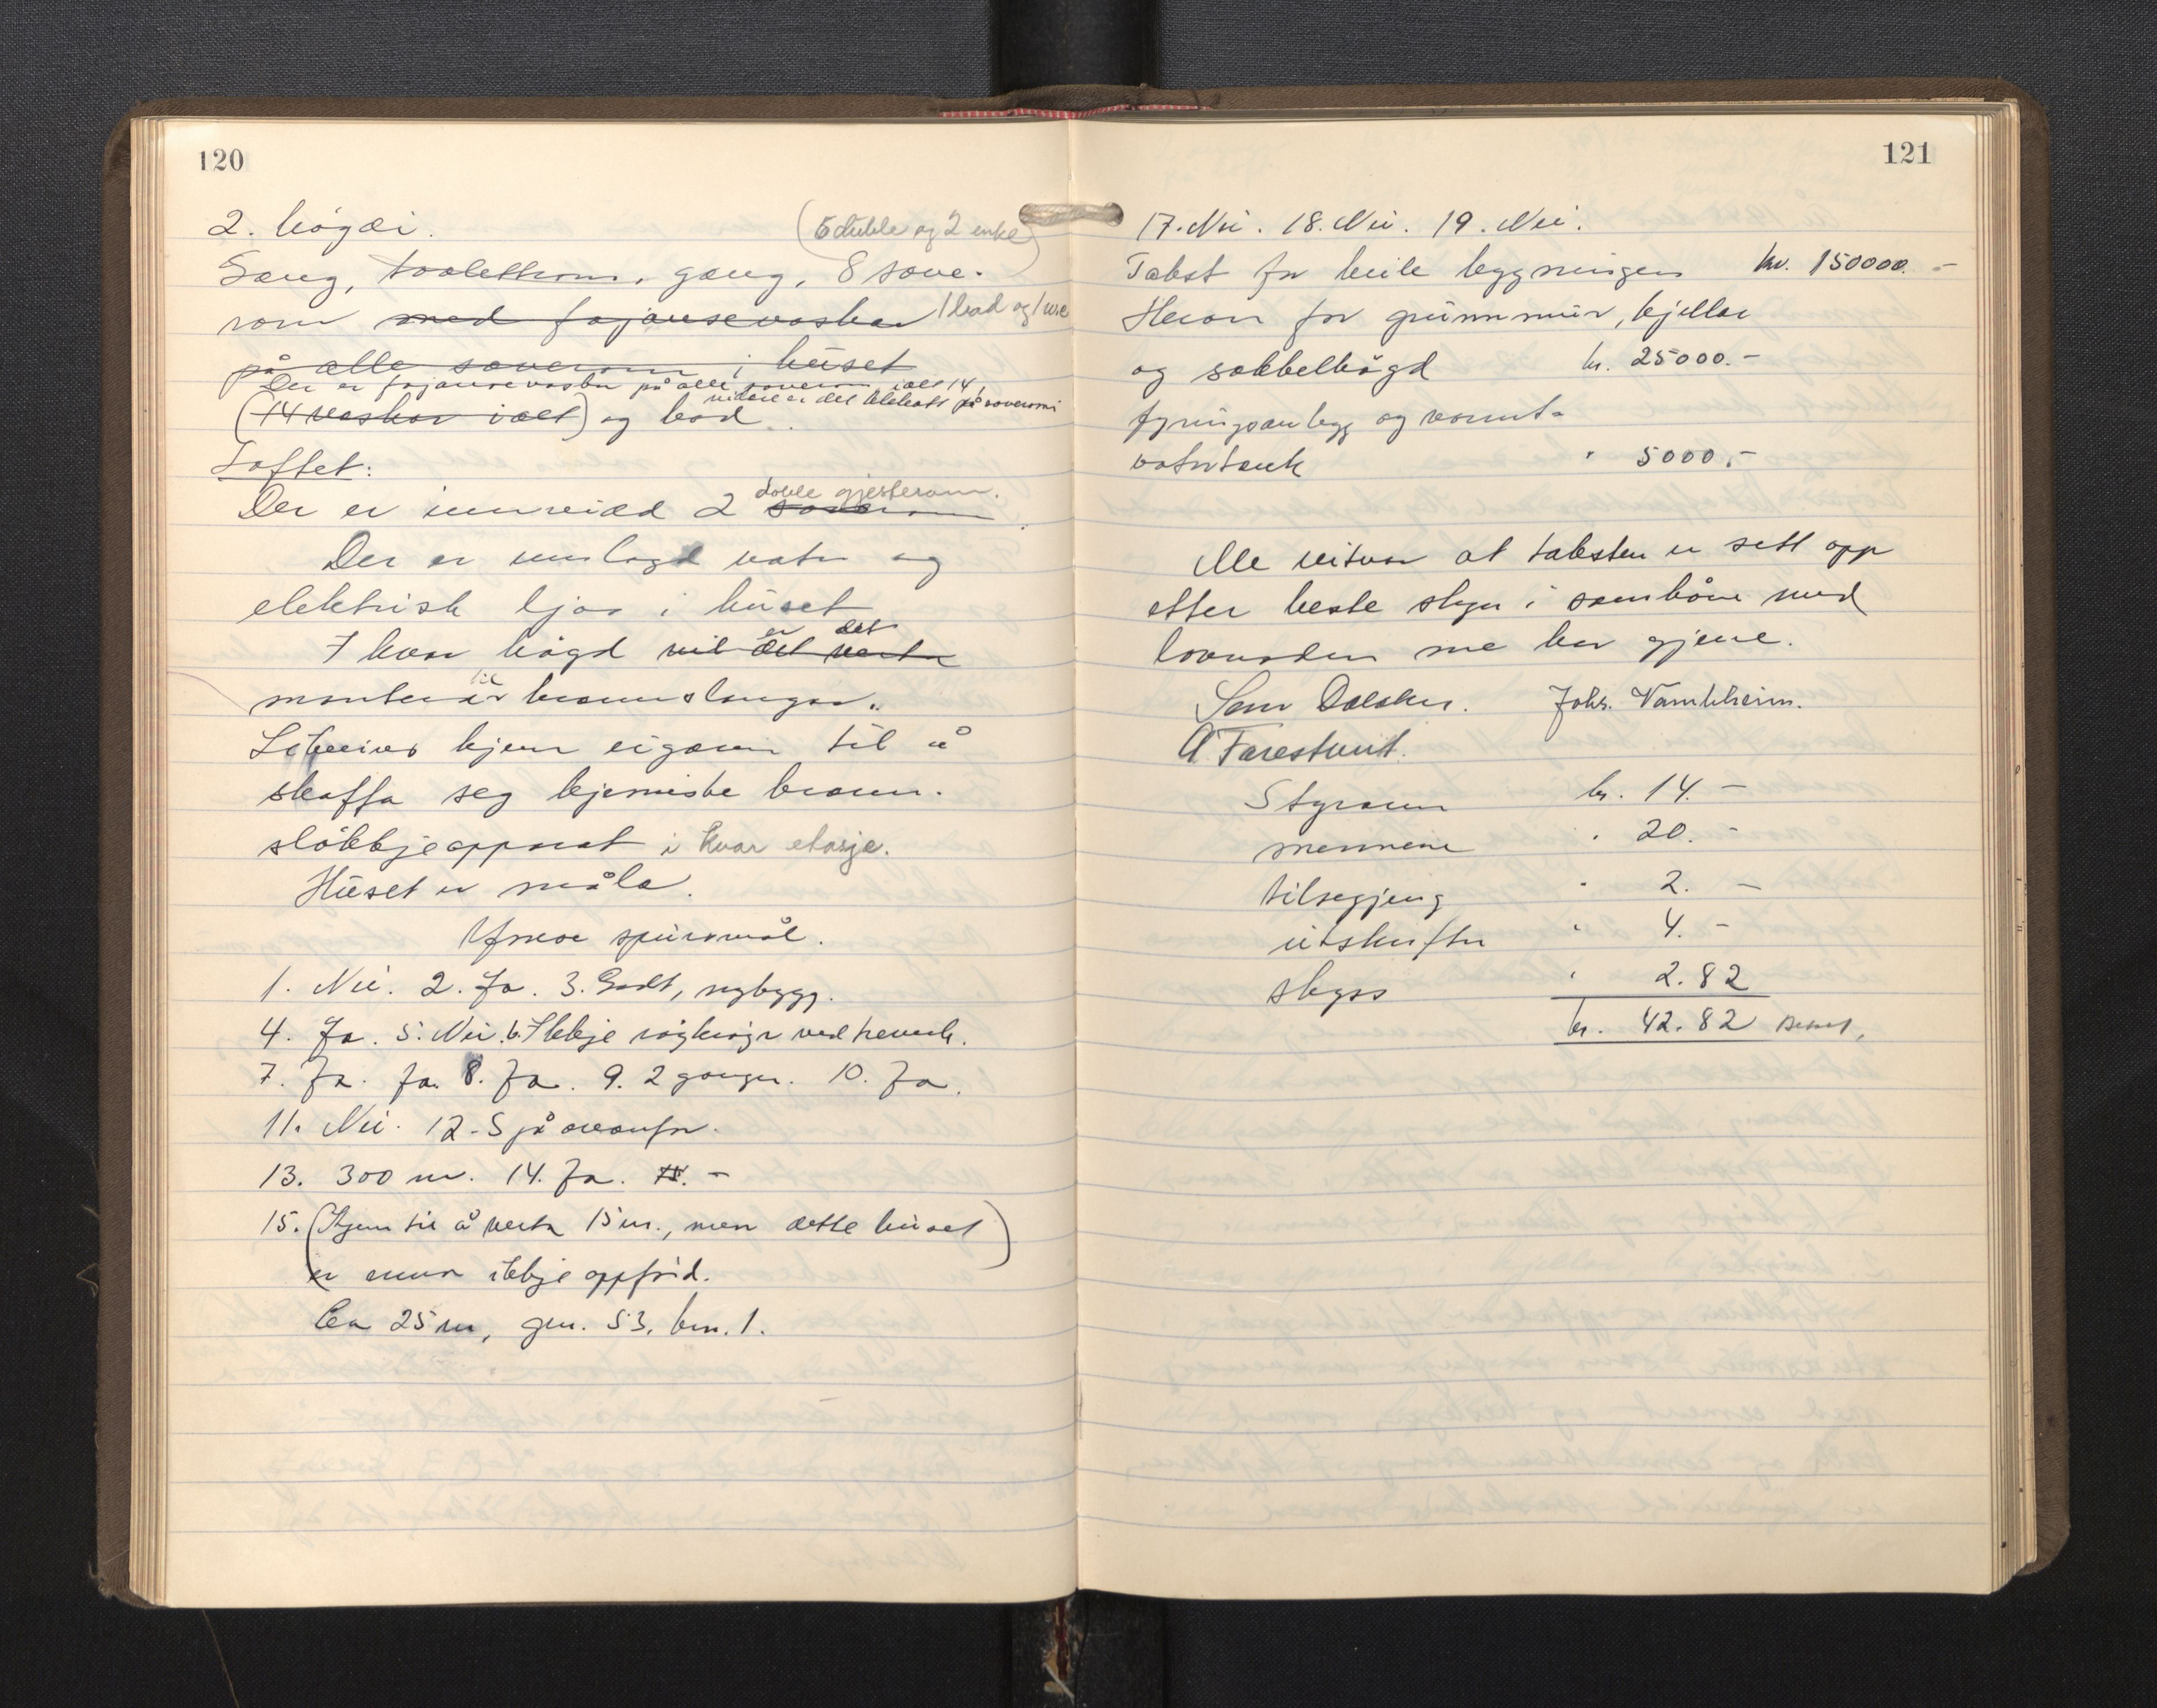 120
2. högdi.
(6 duble og 2 enke)
Gang, toalettrom, gang, 8 sove-
rom med fajansevaskar 1 bad og 1 w.c
på alle soverom i huset
Der er fajansevaskar på alle soverom ialt 14,
vidare er det på soveromi
(14 vaskar ialt) og bad.
Loftet:
doble gjesterom.
Der er innreidd 2 soverom.
Der er innlagd vatn og
elektrisk ljos i huset
er det
I kvar högd vil det verta
til
montera brannslangar.
Likeeins kjem eigaren til å
skaffa seg kjemiske brann-
slökkjeapparat i kvar etasje.
Huset er måla.
Ymse spursmål.
1. Nei. 2. Ja. 3. Godt, nybygg.
4. Ja. 5. Nei. 6. Ikkje röykrör ved treverk.
7. Ja. Ja. 8. Ja. 9. 2 ganger. 10. Ja.
11. Nei. 12. Sjå ovanfor.
13. 300 m. 14. Ja. 15. -
15. (Kjem til å verta 15 m., men dette huset
er enno ikkje oppförd.)
Ca 25 m, gnr. 53, bnr. 1.
121
17. Nei. 18. Nei. 19. Nei.
Takst for heile bygningen kr. 150000.-
Herav for grunnmur, kjellar
og sokkelhögd kr. 25000.-
fyringsanlegg og varmt-
vatntank " 5000.-
Me vitnar at taksten er sett opp
etter beste skyn i samhöve med
lovnaden me har gjeve.
Lars Dalaker. Johs. Vambheim.
A. Farestveit.
Styraren kr. 14.-
mennene " 20.-
tilsegjing " 2.-
utskrifter " 4.-
skyss " 2.82
kr. 42.82